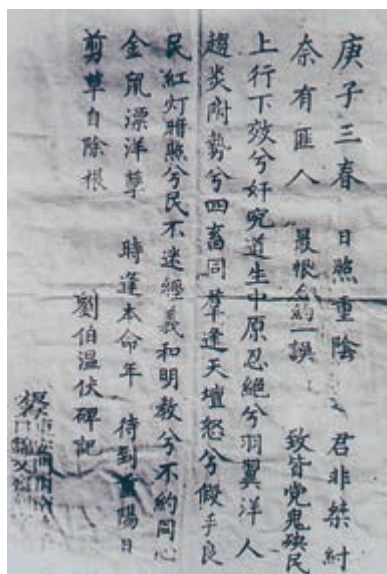 庚子三春 日照重陰 君非桀紂
奈有匪人 最恨和約一誤 致皆党鬼殃民
上行下效兮奸究道生中原忍絕兮羽翼洋人
趨炎附勢兮四畜同羣逢天壇怒兮假手良
民紅灯暗照兮民不迷經義和明教兮不約同心
金鼠漂洋孽 時逢本命年 待到重陽日
剪草自除根
劉伯温伏碑記